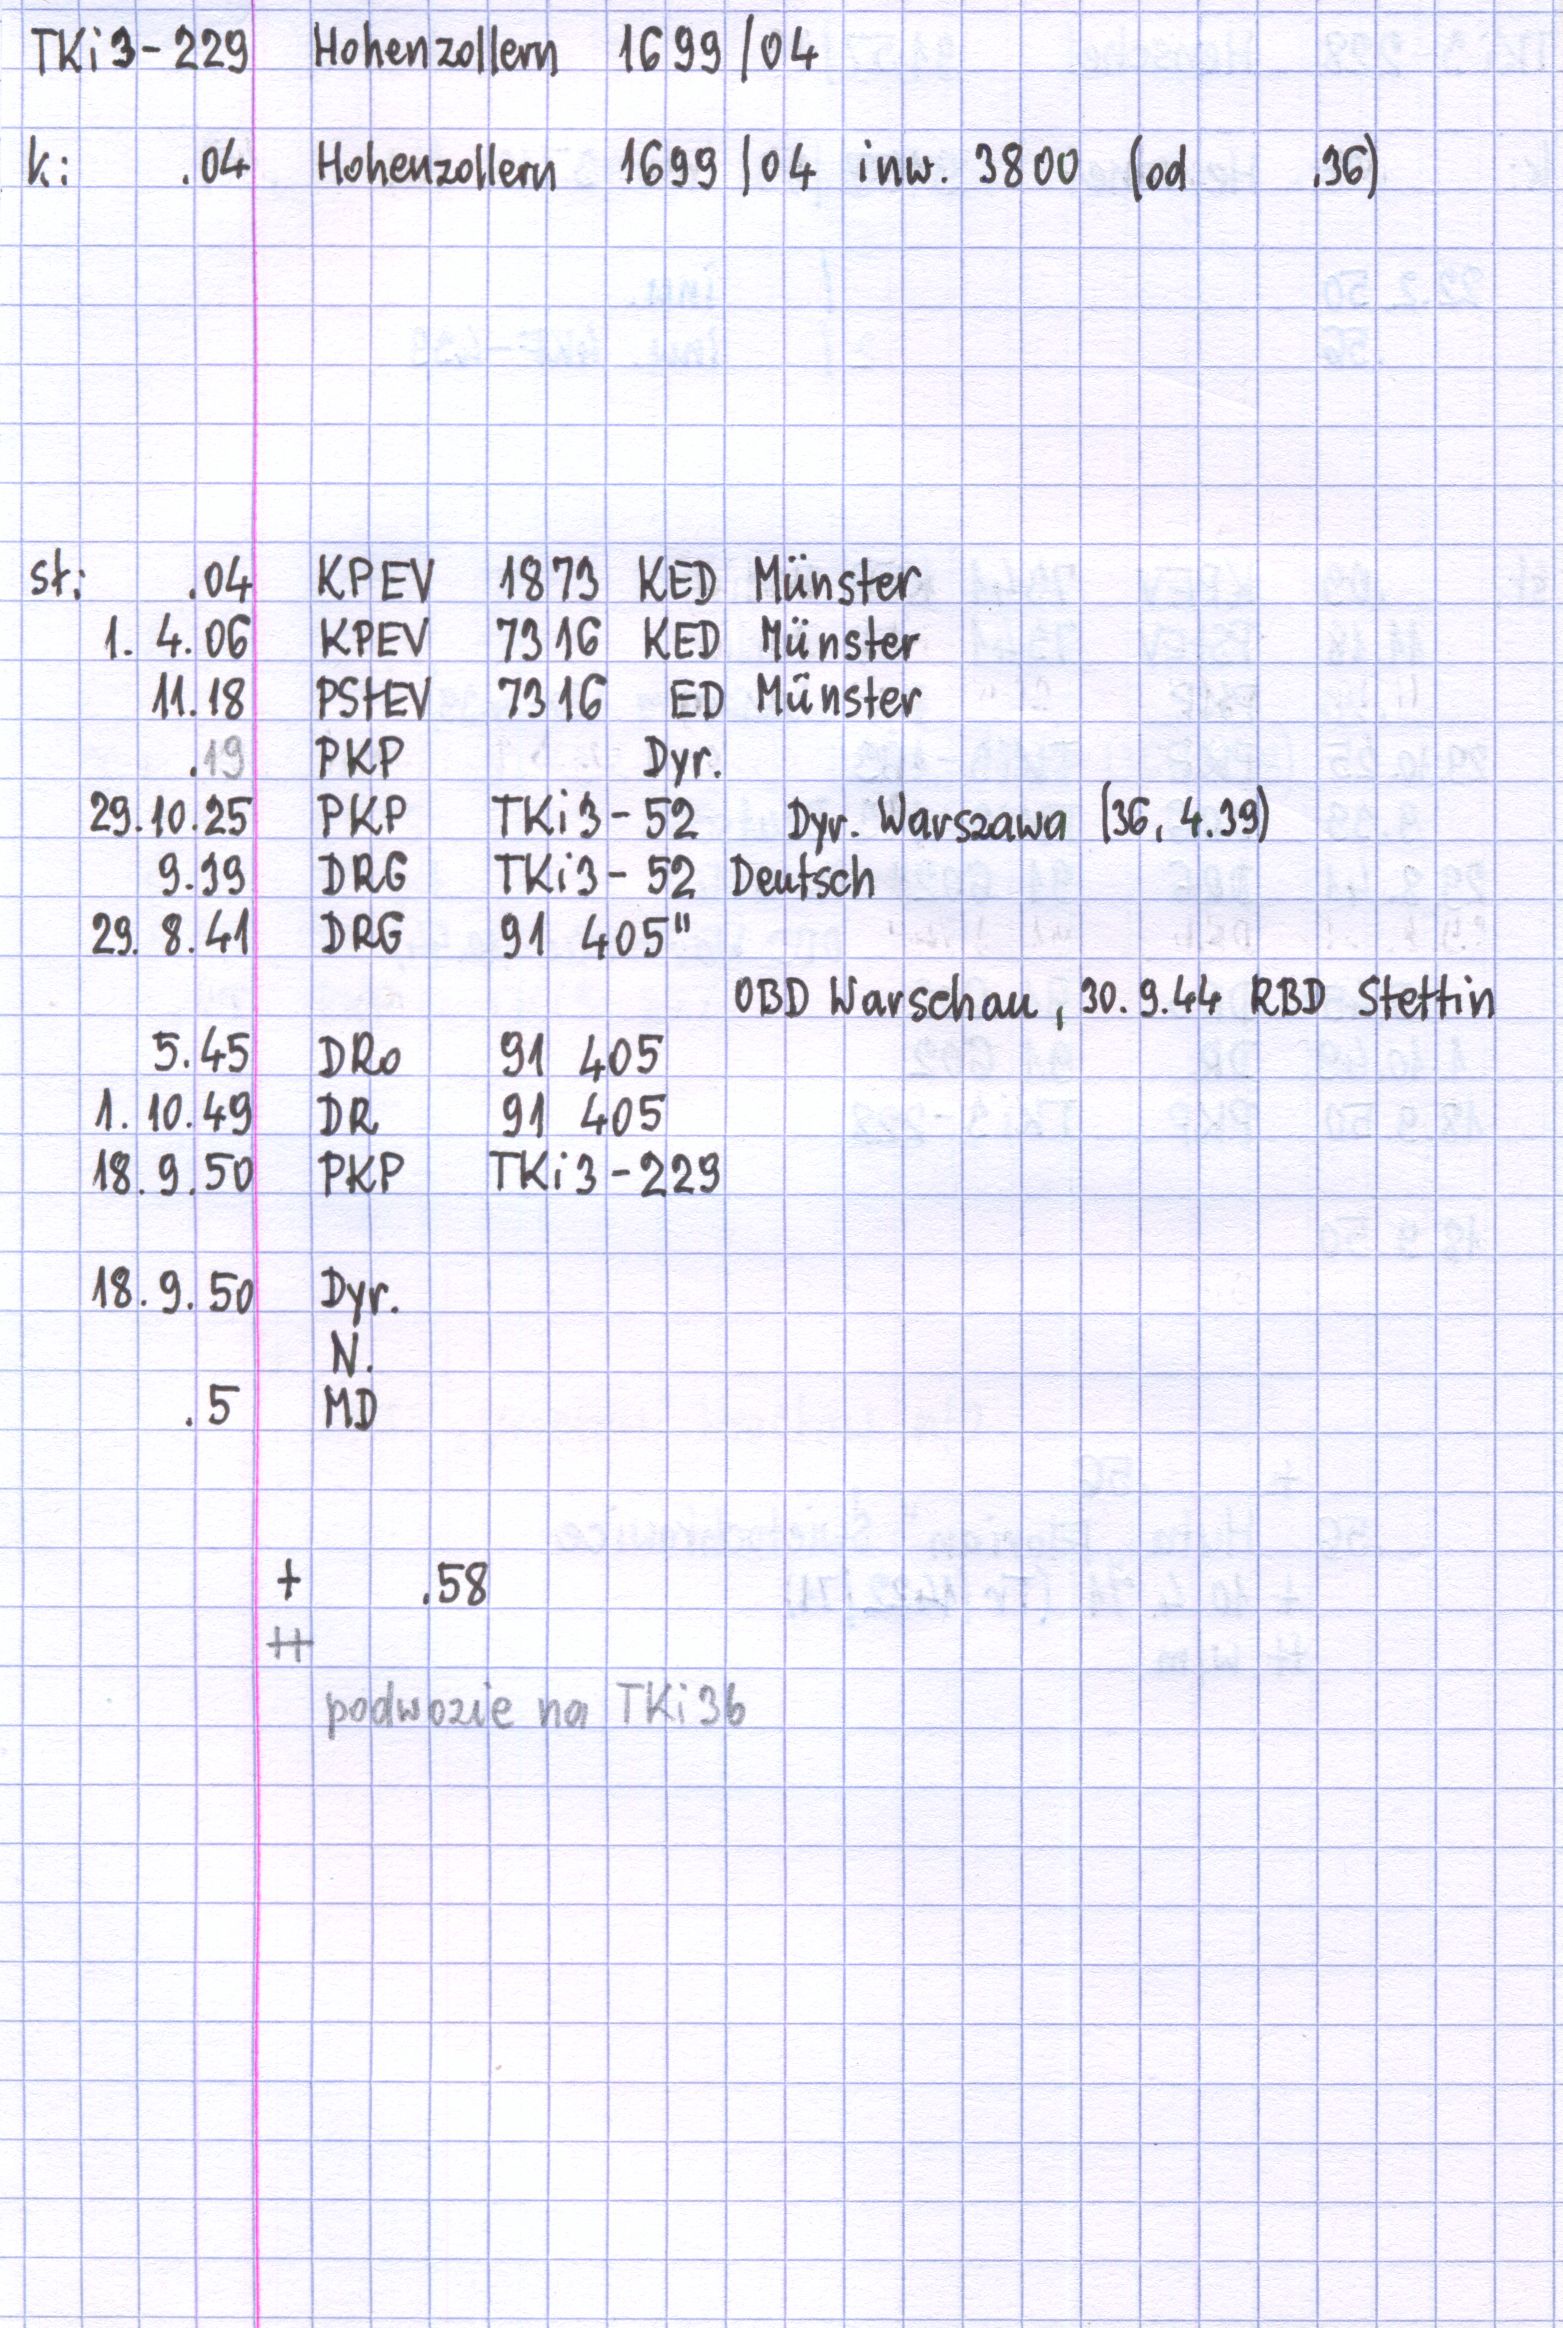 TKi3-229 Hohenzollern 1699/04
k: .04 Hohenzollern 1699/04 inw. 3800 (od .36)
st: .04 KPEV 1873 KED Münster
1. 4.06 KPEV 7316 KED Münster
11.18 PStEV 7316 ED Münster
.19 PKP Dyr.
29.10.25 PKP TKi3-52 Dyr. Warszawa (36, 4.39)
9.39 DRG TKi3-52 Deutsch
29. 8.41 DRG 91 405"
OBD Warschau, 30.9.44 RBD Stettin
5.45 DRo 91 405
1. 10.49 DR 91 405
18. 9.50 PKP TKi3-229
18. 9. 50 Dyr.
N.
.5 MD
+ .58
++
podwozie na TKi3b